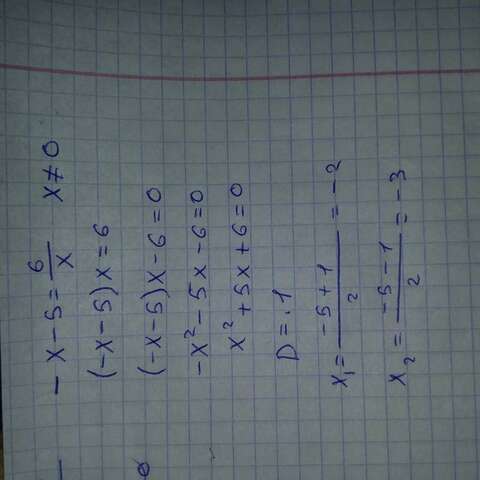 -x-5=6/x x≠0
(-x-5)x=6
(-x-5)x-6=0
-x²-5x-6=0
x²+5x+6=0
D=.1
x₁=(-5+1)/2=-2
x₂=(-5-1)/2=-3